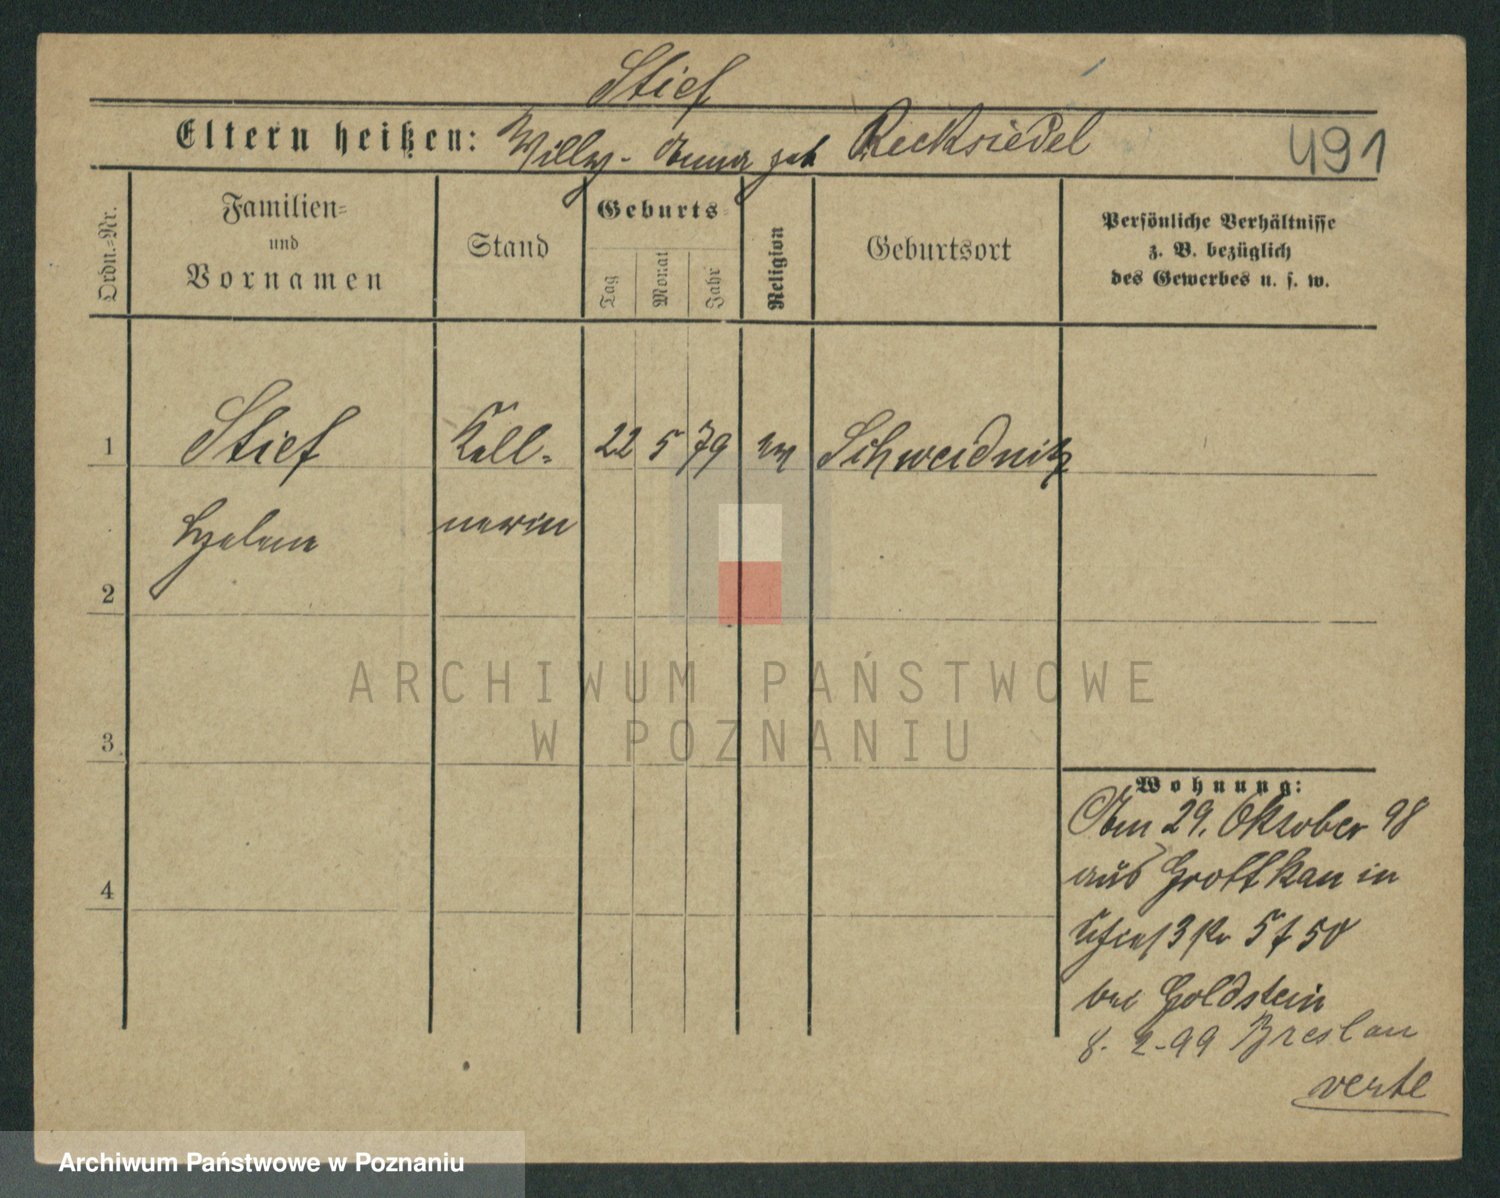 Stief
Eltern heißen: Willy - Anna geb Recksiedel
491
Ordn.=Nr.
Familien=
und
Vornamen
Stand
Geburts=
Tag
Monat
Jahr
Religion
Geburtsort
Persönliche Verhältnisse
z. B. bezüglich
des Gewerbes u. s. w.
1 Stief Kell- 22 5 79 ev Schweidnitz
Helene nerin
2
ARCHIWUM PAŃSTWOWE
W POZNANIU
3
Wohnung:
Am 29. Oktober 98
4
aus Grottkau in
50
bei Goldstein
8. 2-99 Breslau
verte
Archiwum Państwowe w Poznaniu